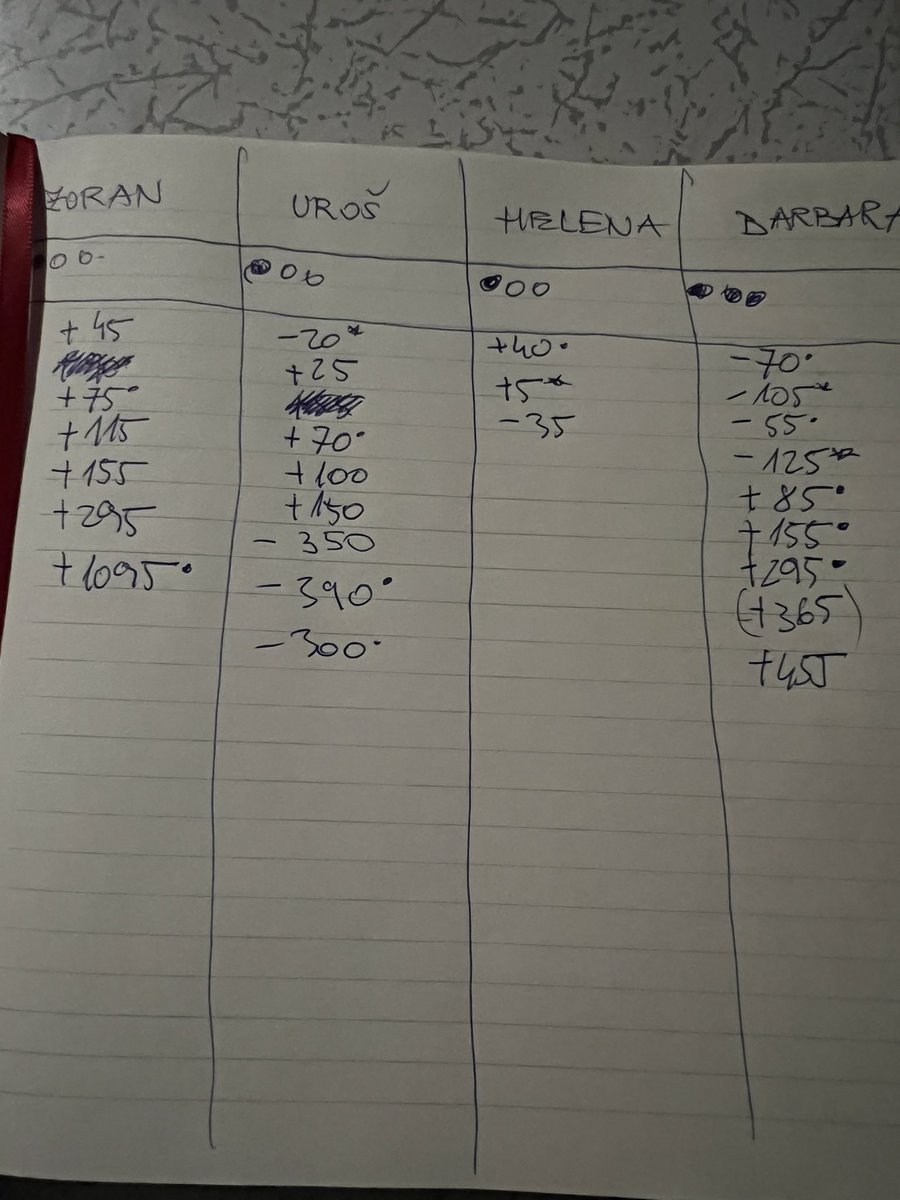 ZORAN
+45
+75•
+115
+155
+295
+1095•
UROŠ
-20*
+25
+70•
+100
+150
-350
-390•
-300•
HELENA
+40•
+5*
-35
BARBARA
-70•
-105*
-55•
-125*
+85•
+155•
+295•
(+365)
+455